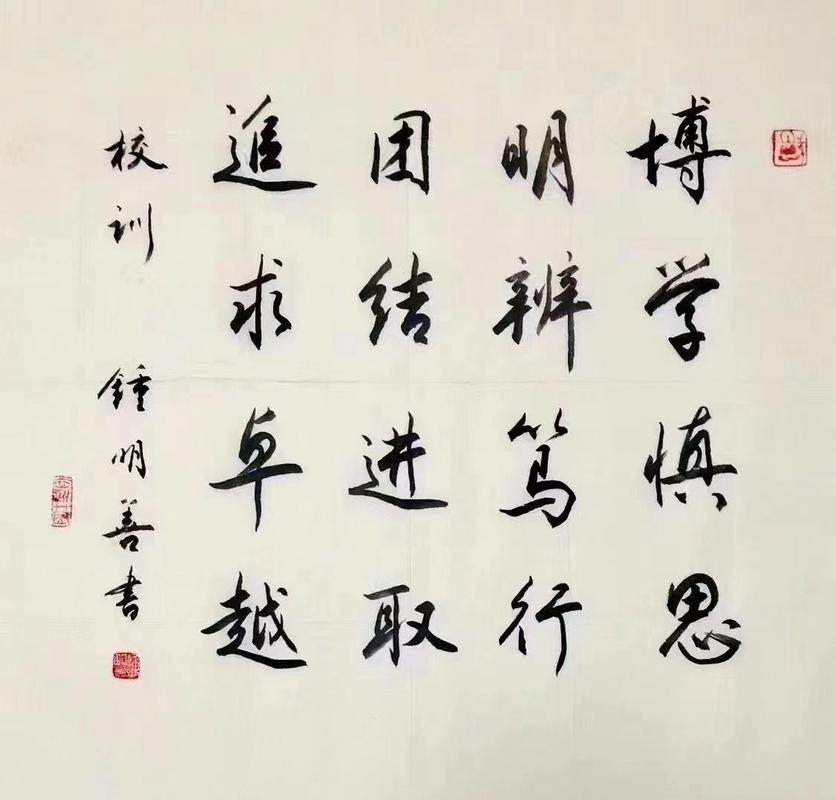 博学慎思
明辨笃行
团结进取
追求卓越
校训 鍾明善書